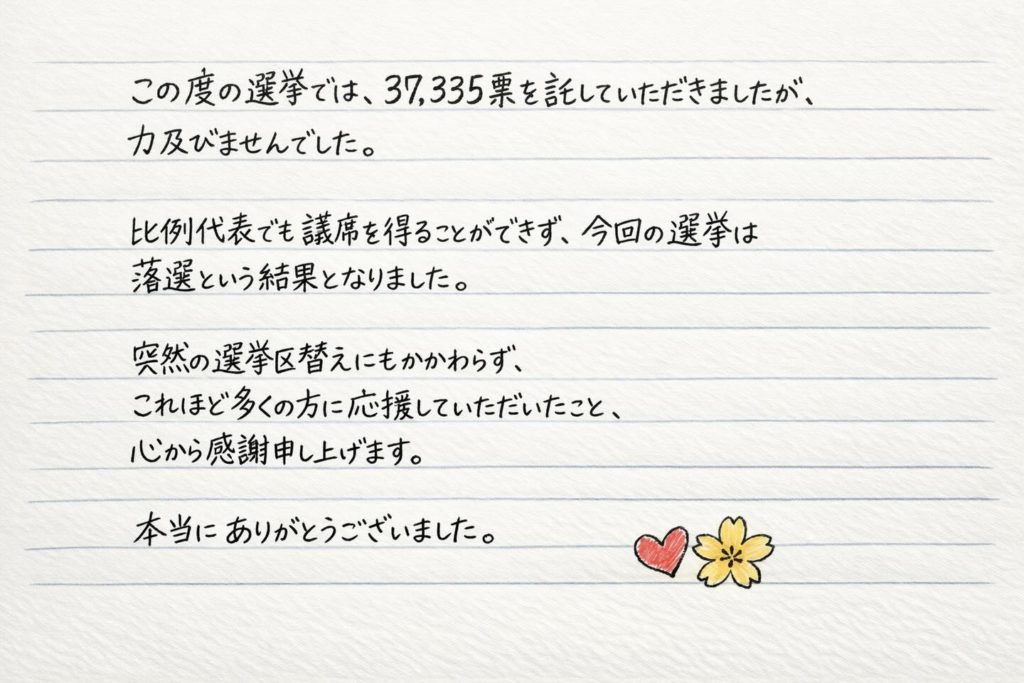 この度の選挙では、37,335票を託していただきましたが、
力及びませんでした。
比例代表でも議席を得ることができず、今回の選挙は
落選という結果となりました。
突然の選挙区替えにもかかわらず、
これほど多くの方に応援していただいたこと、
心から感謝申し上げます。
本当にありがとうございました。